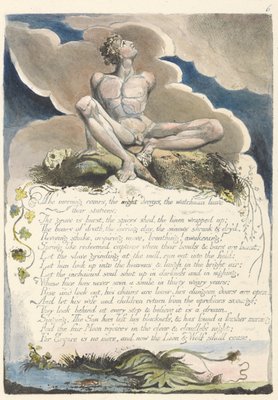 6
The morning comes, the night decays, the watchmen leave
their stations;
The grave is burst, the spices shed, the linen wrapped up;
The bones of death, the cov'ring clay, the sinews shrunk & dry'd.
Reviving shake, inspiring move, breathing! awakening!
Spring like redeemed captives when their bonds & bars are burst,
Let the slave grinding at the mill, run out into the field:
Let him look up into the heavens & laugh in the bright air;
Let the inchained soul shut up in darkness and in sighing,
Whose face has never seen a smile in thirty weary years;
Rise and look out, his chains are loose, his dungeon doors are open.
And let his wife and children return from the opressors scourge;
They look behind at every step & believe it is a dream.
Singing. The Sun has left his blackness, & has found a fresher morning
And the fair Moon rejoices in the clear & cloudless night;
For Empire is no more, and now the Lion & Wolf shall cease.